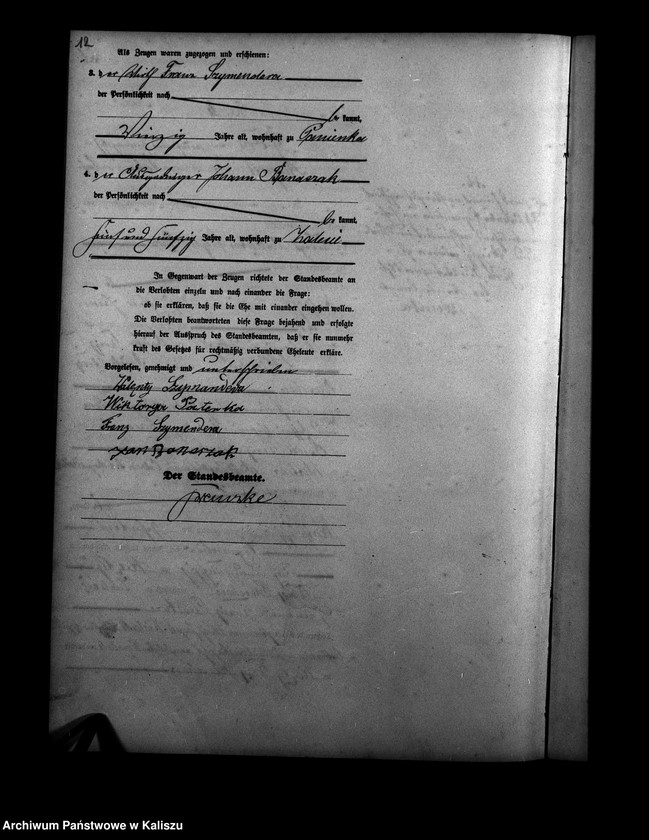 12
Als Zeugen waren zugezogen und erschienen:
3. der Franz Szymendera
der Persönlichkeit nach
be kannt,
Vierzig Jahre alt, wohnhaft zu Panienka
4. der Johann Banaszak
der Persönlichkeit nach
be kannt,
fünf und fünfzig Jahre alt, wohnhaft zu
In Gegenwart der Zeugen richtete der Standesbeamte an
die Verlobten einzeln und nach einander die Frage:
ob sie erklären, daß sie die Ehe mit einander eingehen wollen.
Die Verlobten beantworteten diese Frage bejahend und erfolgte
hierauf der Ausspruch des Standesbeamten, daß er sie nunmehr
kraft des Gesetzes für rechtmäßig verbundene Eheleute erkläre.
Vorgelesen, genehmigt und unterschrieben
Walenty Szymandera
Wiktorya Paterka
Franz Szymendera
Jan Banaszak
Der Standesbeamte.
Archiwum Państwowe w Kaliszu